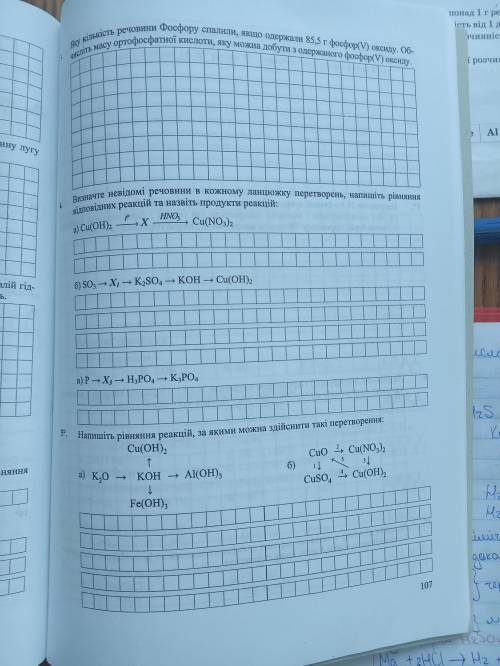 Яку кількість речовини Фосфору спалили, якщо одержали 85,5 г фосфор(V) оксиду. Об-
числіть масу ортофосфатної кислоти, яку можна добути з одержаного фосфор(V) оксиду.
Визначте невідомі речовини в кожному ланцюжку перетворень, напишіть рівняння
відповідних реакцій та назвіть продукти реакцій:
а) Cu(OH)₂ –t°→ X –HNO₃→ Cu(NO₃)₂
б) SO₃ → X₁ → K₂SO₄ → KOH → Cu(OH)₂
в) P → X₃ → H₃PO₄ → K₃PO₄
Напишіть рівняння реакцій, за якими можна здійснити такі перетворення:
Cu(OH)₂
↑
а) K₂O → KOH → Al(OH)₃
↓
Fe(OH)₃
б) CuO 2→ Cu(NO₃)₂
1↓ 5↖ 3↓
CuSO₄ 4→ Cu(OH)₂
107
ину лугу
алій гід-
вняння
понад 1 г
ість від 1
чинніс
розчи
Al